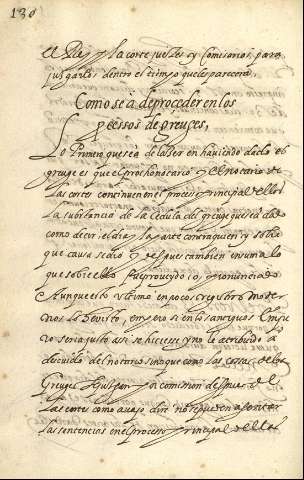 130
el Rey y la corte jueses y Comisarios para
jusgarlos dentro el tiempo que les parecera,
Como se à de proceder en los
pcessos de greuges,
Lo Primero que se à de haser en haviendo dado el
greuge es que el prothonotario y el notario de
las cortes continuen en el processo principal dellas
la substancia de la cedula del greuge que se à dado
como decir el dia y la parte contra quien y sobre
que causa se dio y despues tambien en suma lo
que sobre ello fue proveydo, o, pronunciado
Aunque esto ultimo en pocos registros moder
nos lo he visto, empero si en los antiguos empe
ro seria justo assi se hiciesse y no lo atribuido à
descuido del notario sino que como las cosas de los
Greuges se jusgan por comission despues de
las cortes como abajo diré no se pueden asentar
las sentencias en el processo principal dellas